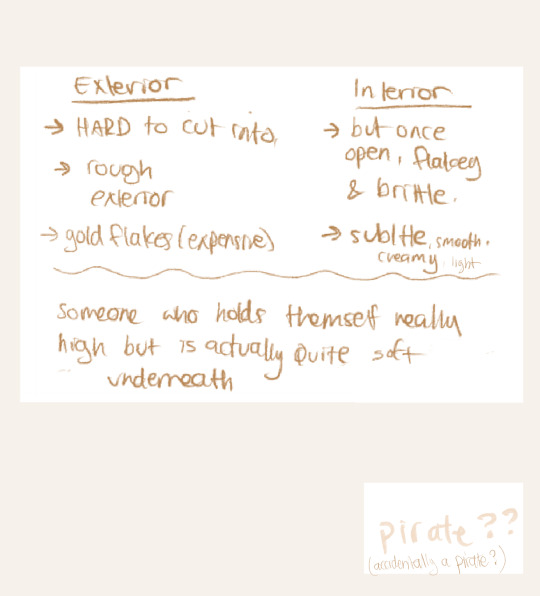 Exterior
→ HARD to cut into,
→ rough
exterior
→ gold flakes (expensive)
Interior
→ but once
open, flakey
& brittle.
→ sublte, smooth,
creamy, light
Someone who holds themself really
high but is actually quite soft
underneath
pirate??
(accidentally a pirate?)